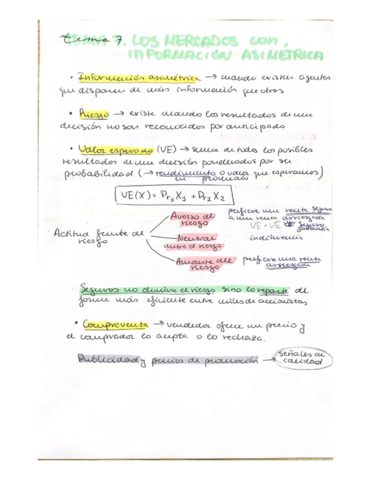 tema 7. LOS MERCADOS CON
INFORMACIÓN ASIMÉTRICA
• Información asimétrica → cuando existen agentes
que disponen de más información que otros
• Riesgo → existe cuando los resultados de una
decisión no son reconocidos por anticipado
• Valor esperado (VE) → suma de todos los posibles
resultados de una decisión ponderados por su
probabilidad (→ rendimiento o valor que esperamos)
en promedio
VE(X) = Pr₁X₁ + Pr₂X₂
Actitud frente de
riesgo
Averso de
riesgo
prefiere una renta segura
a una renta arriesgada
VE = VE
Neutral
ante el riesgo
indiferencia
Amante del
riesgo
prefiere una renta
arriesgada
Seguros no elimina el riesgo sino lo reparte de
forma más eficiente entre miles de accionistas
• Compraventa → vendedor ofrece un precio y
el comprador lo acepta o lo rechaza.
Publicidad y precios de promoción → señales de
calidad